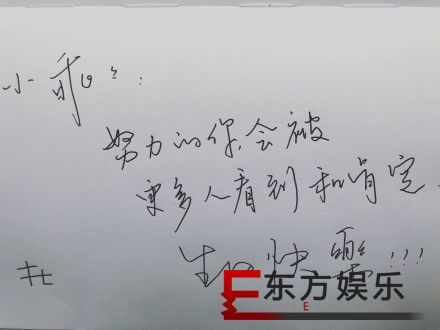 小乖：
努力的你，会被
更多人看到和肯定.
生日快乐!!!
杜
E
东方娱乐
E